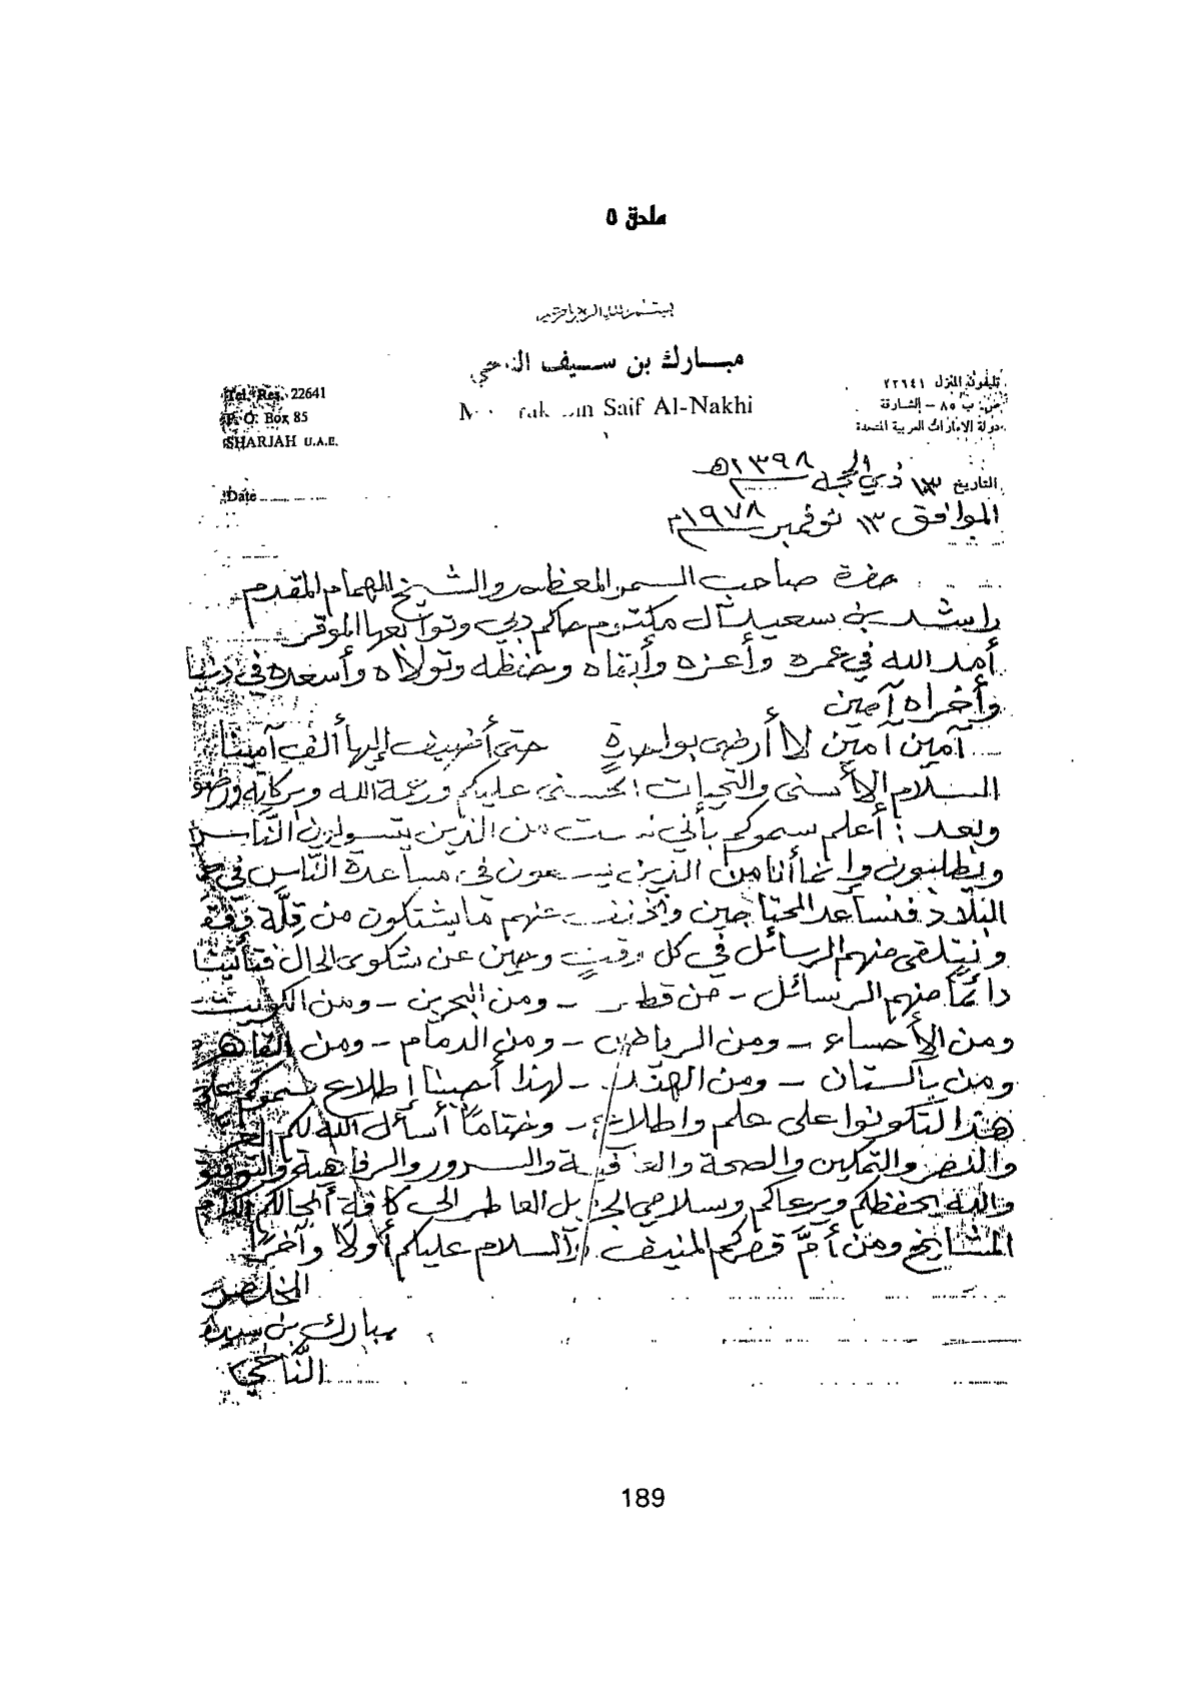 ملحق ٥
مبارك بن سيف
Saif Al-Nakhi
Tel. Res. 22641
P. O. Box 85
SHARJAH U.A.E.
Date
تليفون المنزل ٢٢٦٤١
ص. ب ٨٥ - الشارقة
دولة الامارات العربية المتحدة
التاريخ ١٣ ذي الحجة ١٣٩٨هـ
الموافق ١٣ نوفمبر ١٩٧٨م
حضرة صاحب السمو المعظم والشيخ الهمام المقدم
راشد بن سعيد آل مكتوم حاكم دبي وتوابعها الموقر
أمد الله في عمره وأعزه وأبقاه وحفظه وتولاه وأسعده في
وأخراه آمين
آمين آمين لا أرضى بواحدة حتى أضيف إليها ألف آمينا
السلام الأسنى والتحيات الحسنى عليكم ورحمة الله وبركاته
وبعد : أعلم سموكم بأني لست من الذين يتسولون النّاس
ويطلبون وإنما أنا من الذين يسعون في مساعدة النّاس في
البلاد فنساعد المحتاجين ونخفف عنهم ما يشتكون من قِلَّة
ونتلقى منهم الرسائل في كل وقت وحين عن شكوى الحال فتأتينا
دائمًا منهم الرسائل - من قطر - ومن البحرين - ومن الكويت
ومن الأحساء - ومن الرياض - ومن الدمام - ومن القاهرة
ومن باكستان - ومن الهند - لهذا أحببنا إطلاع سموكم على
هذا لتكونوا على علم واطلاع - وختامًا أسأل الله لكم العز
والنصر والتمكين والصحة والعافية والسرور والرفاهية والتوفيق
والله يحفظكم ويرعاكم وسلامي الجزيل العاطر إلى كافة أنجالكم الكرام
المشايخ ومن أمَّ قصركم المنيف والسلام عليكم أولاً وآخرًا
المخلص
مبارك بن سيف
النَّاخي
189